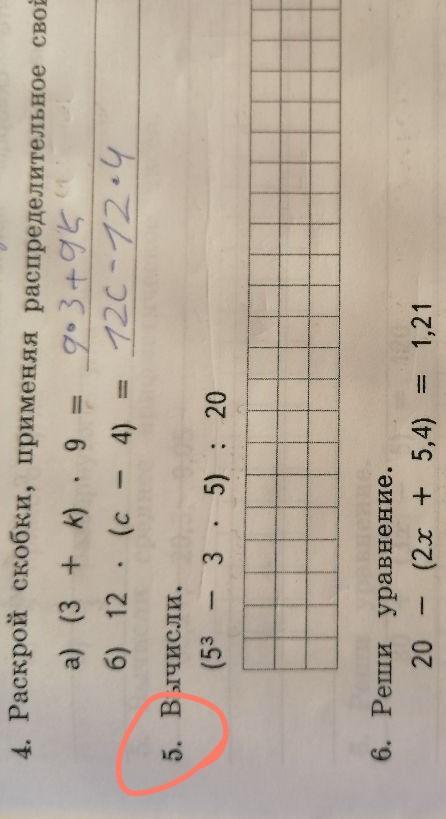 4. Раскрой скобки, применяя распределительное свой
а) (3 + k) · 9 = 9·3+9k
б) 12 · (c − 4) = 12c-12·4
5. Вычисли.
(5³ − 3 · 5) : 20
6. Реши уравнение.
20 − (2x + 5,4) = 1,21